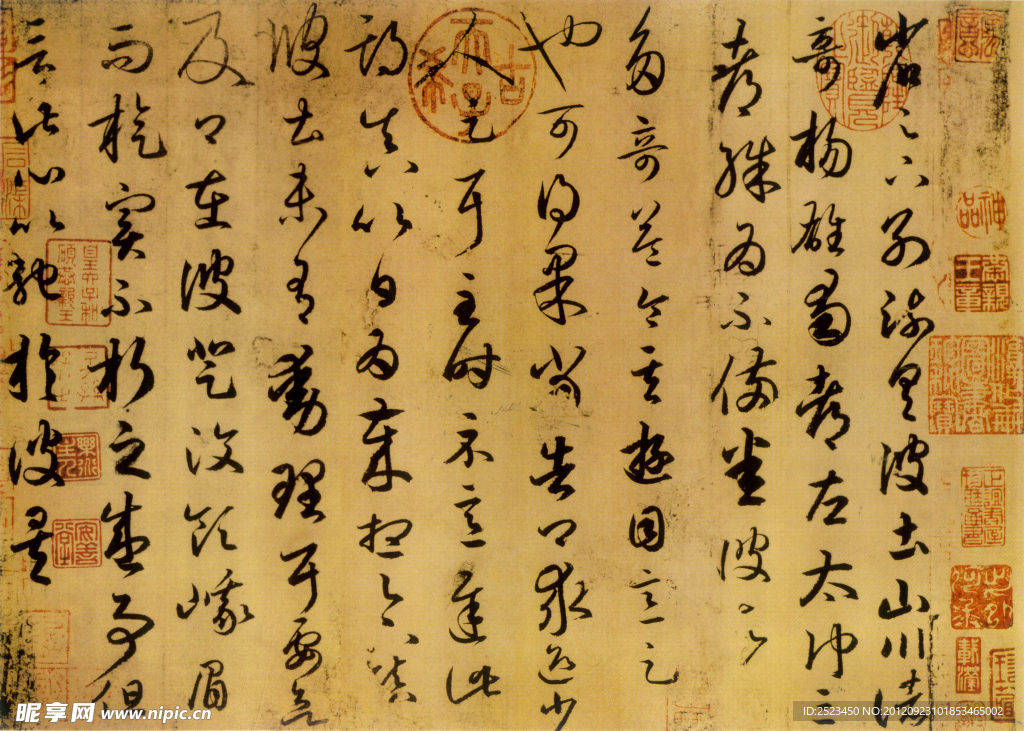 省足下別疏具彼土山川諸
奇揚雄蜀都左太沖三
都殊為不備悉彼故為
多奇益令其遊目意足
也可得果當告卿求迎少
人足耳至時示意遲此
期真以日為歲想足下鎮
彼土未有動理耳要欲
及卿在彼登汶領峨眉
而旋實不朽之盛事但
言此心以馳於彼矣
古稀天子
昵享网 www.nipic.cn
ID:2523450 NO:20120923101853465002